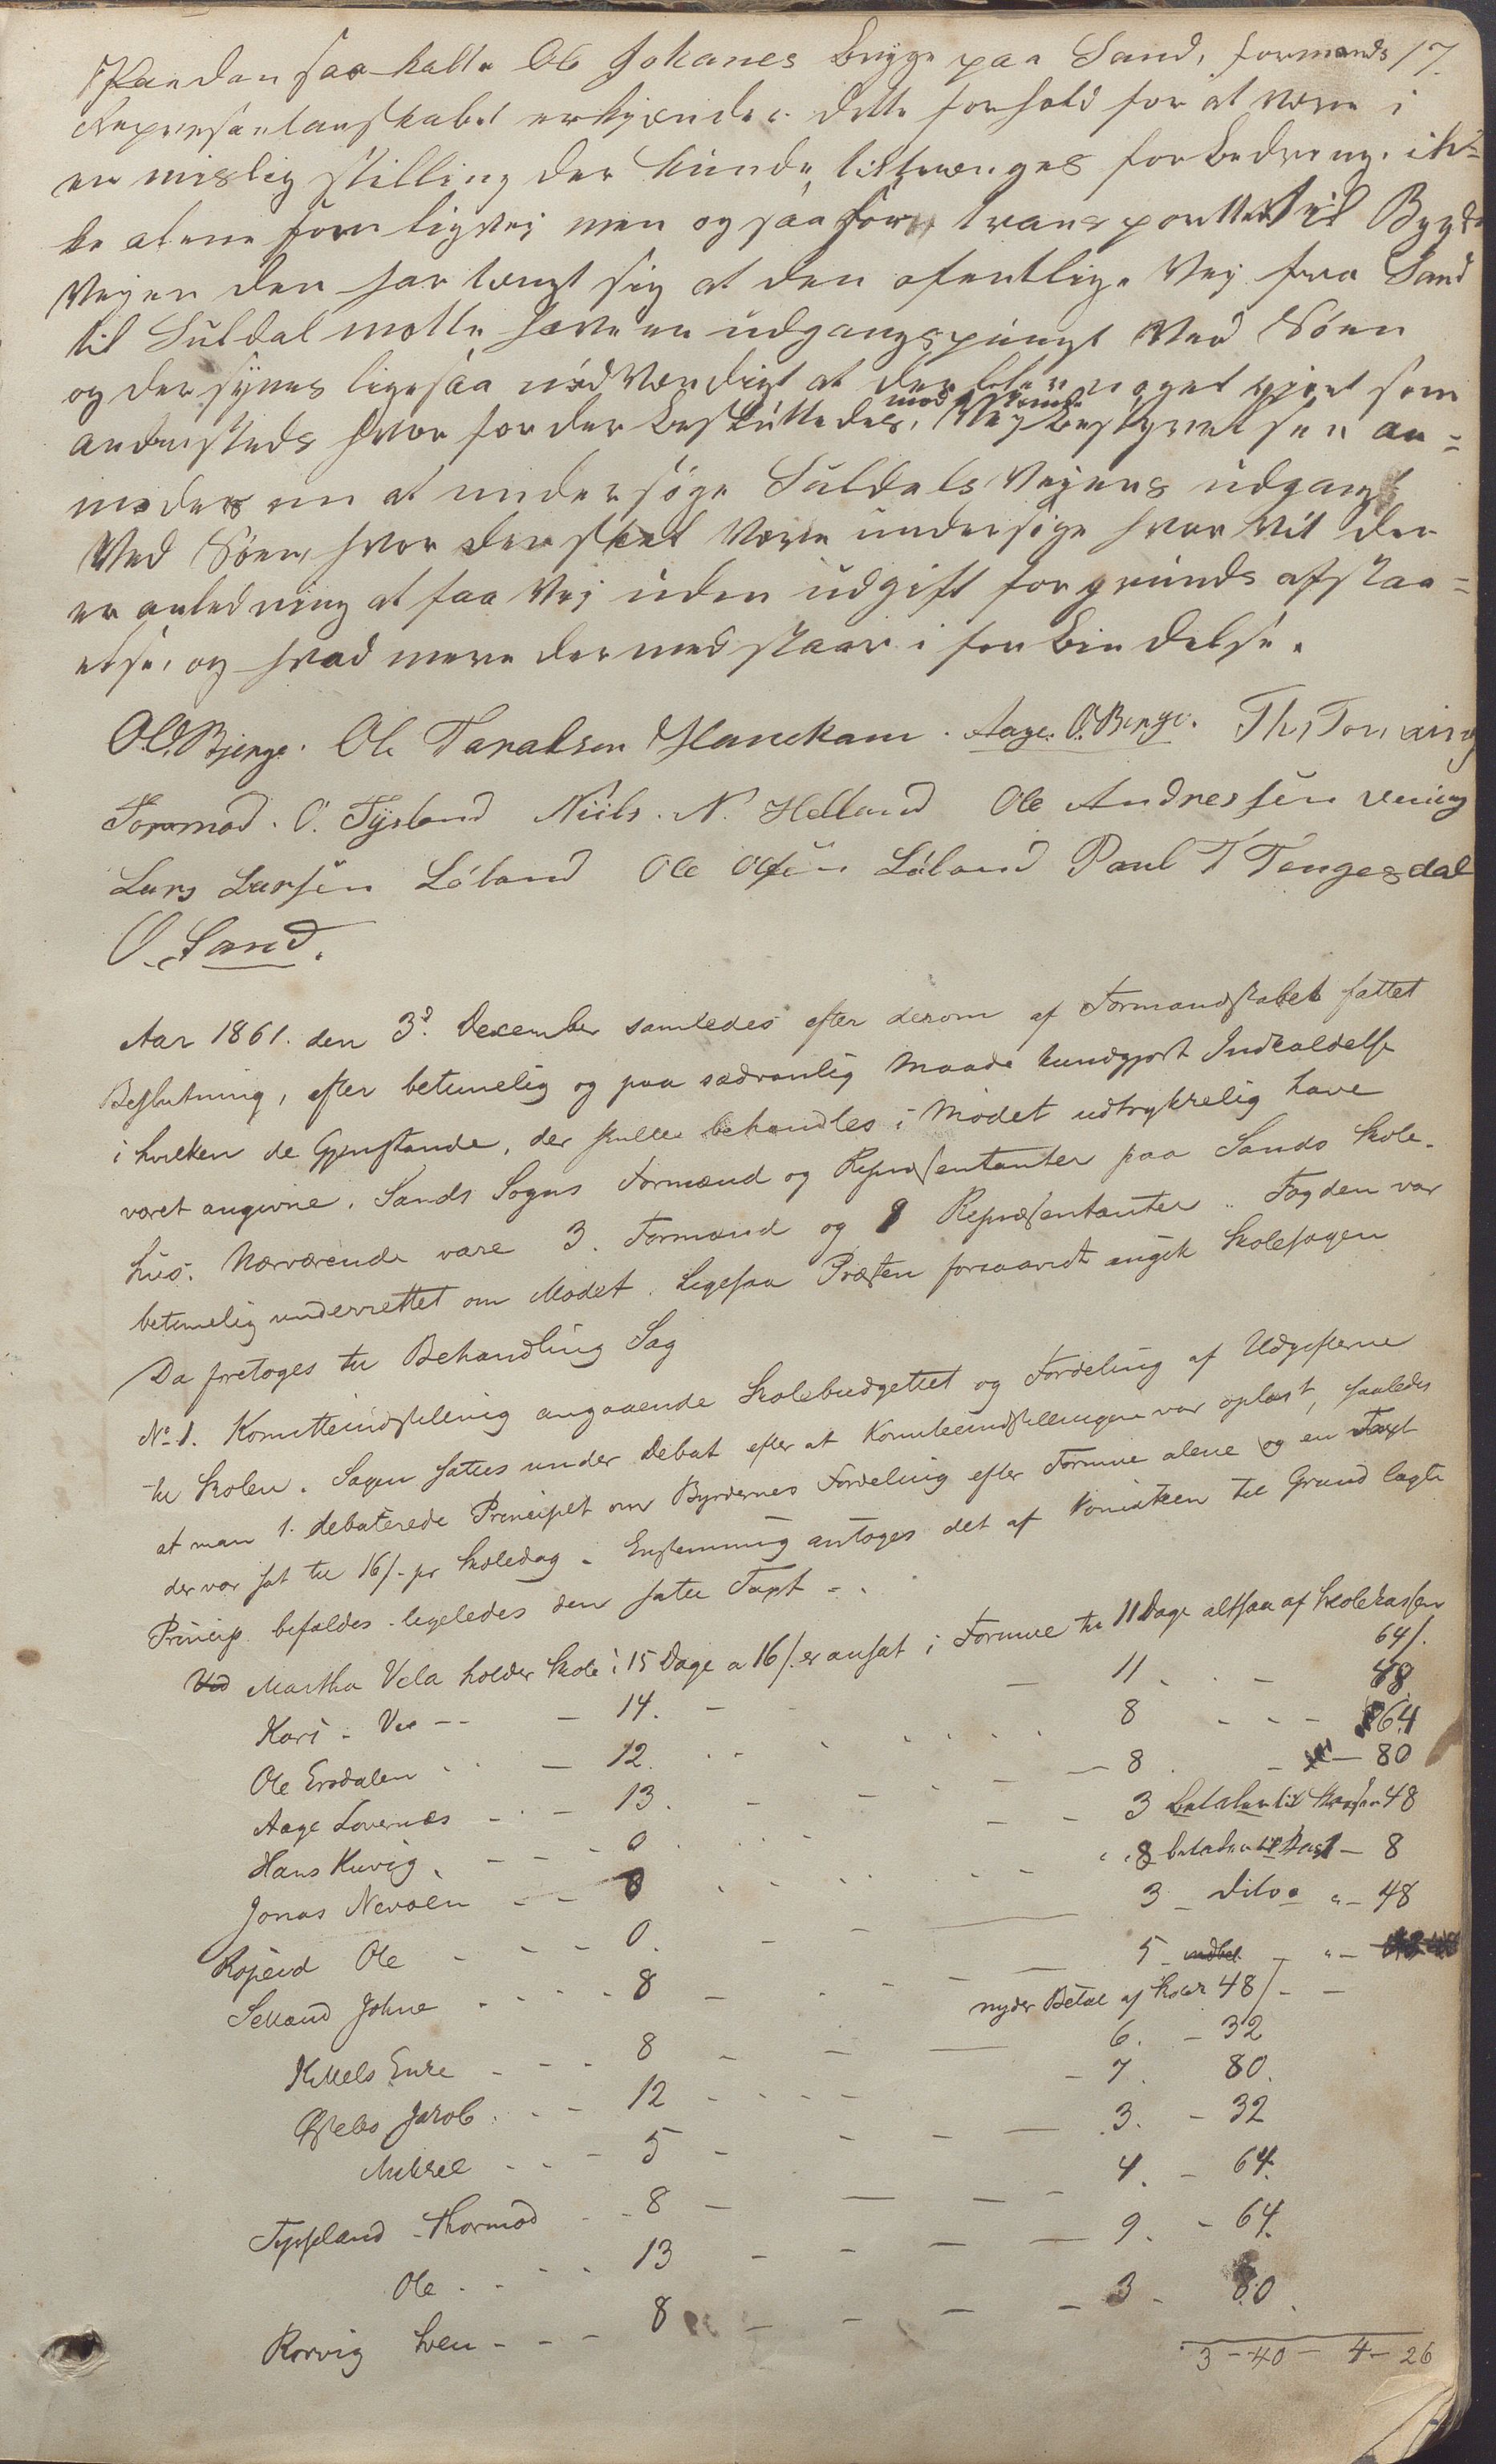 Paa den saa kalte Ole Johanes brygge paa Sand, formands 17.
Repræsentanskabet erkjænder dette forhold for at være i
en mislig stilling der kunde tiltrænges forbedring. ik=
ke alene for ligvej men ogsaa for transporttet til Bygde
Vejen den har tængt sig at den ofentlige Vej fra Sand
til Suldal motte have en udgangspungt Ved Söen
og der synes ligesaa nødvendigt at der bliver noget gjort som
andersteds hvor for der besluttedes, Vejbestyrelsen an=
modes om at undersöge Suldals Vejens udgangt
Ved Söen, hvor der skal være undersöge hvor vit der
er anledning at faa Vej uden udgift for grunds afstaa=
else, og hvad mere der med staar i forbindelse.
O O. Bjerge. Ole Taralsen Hanekam. Aage O. Berge. Ths Tonning
Tormod. O. Tysland Niils. N. Helland Ole Andressen
Lars Larsen Løland Ole Olsen Løland Paul T Tengesdal
O. Sand.
Aar 1861. den 3d. December samledes efter derom af Formandskabet fattet
Beslutning, efter betimelig og paa sædvanlig Maade kundgjort Indkaldelse
i hvilken de Gjenstande, der skulle behandles i Mödet udtrykkelig have
været angivne, Sands Sogns Formænd og Repræsentanter paa Sands Skole-
huus. Nærværende vare 3. Formænd og 9 Repræsentanter. Fogden var
betimelig underrettet om Mødet. Ligesaa Præsten forsaavidt angik Skolesagen
Da foretoges til Behandling Sag
No 1. Komitteindstilling angaaende Skolebudgettet og Fordeling af Udgifterne
til Skolen. Sagen sattes under Debat efter at Komiteeindstillingen var oplæst, saaledes
at man 1. debaterede Principet om Byrdernes Fordeling efter Formue alene og en Taxt
der var sat til 16/- pr Skoledag. Enstemmig antoges det af Komiteen til Grund lagte
Princip befaldes ligeledes den satte Taxt - .
Martha Vela holder Skole i 15 Dage a 16/. er ansat i Formue til 11 Dage altsaa af Skolekassen 64/.
Kari - Vee - - - 14. - - 11 . . - 48.
Ole Erødalen . . - 12. . . . 8 . . - 64
Aage Lovernæs - . - 13. - - 8 . - - 80
Hans Kuvig. - - - 0 . . - - 3 betaler til Kassen 48
Jonas Nevøen - - 0 . . - - 8 betaler til Kas - 8
Ropeid Ole - - - 0. - - 3 - dito " - 48
Selland Johne . . . . 8 - . - - 5 -
nyder Betal af Skolek 48/- -
Kittels Enke - - - 8 - - - 6. - 32
Østebø Jakob . . - 12 - . - - - 7. 80.
Mikkel - . - 5 - - - - 3. - 32
Tysland - Thormod . - 8 - - - - 4. - 64.
Ole . - . - 13 - - - - 9. - 64.
Rørvig Sven - - - 8 - - - 3 - 80.
3 - 40 - 4 - 26